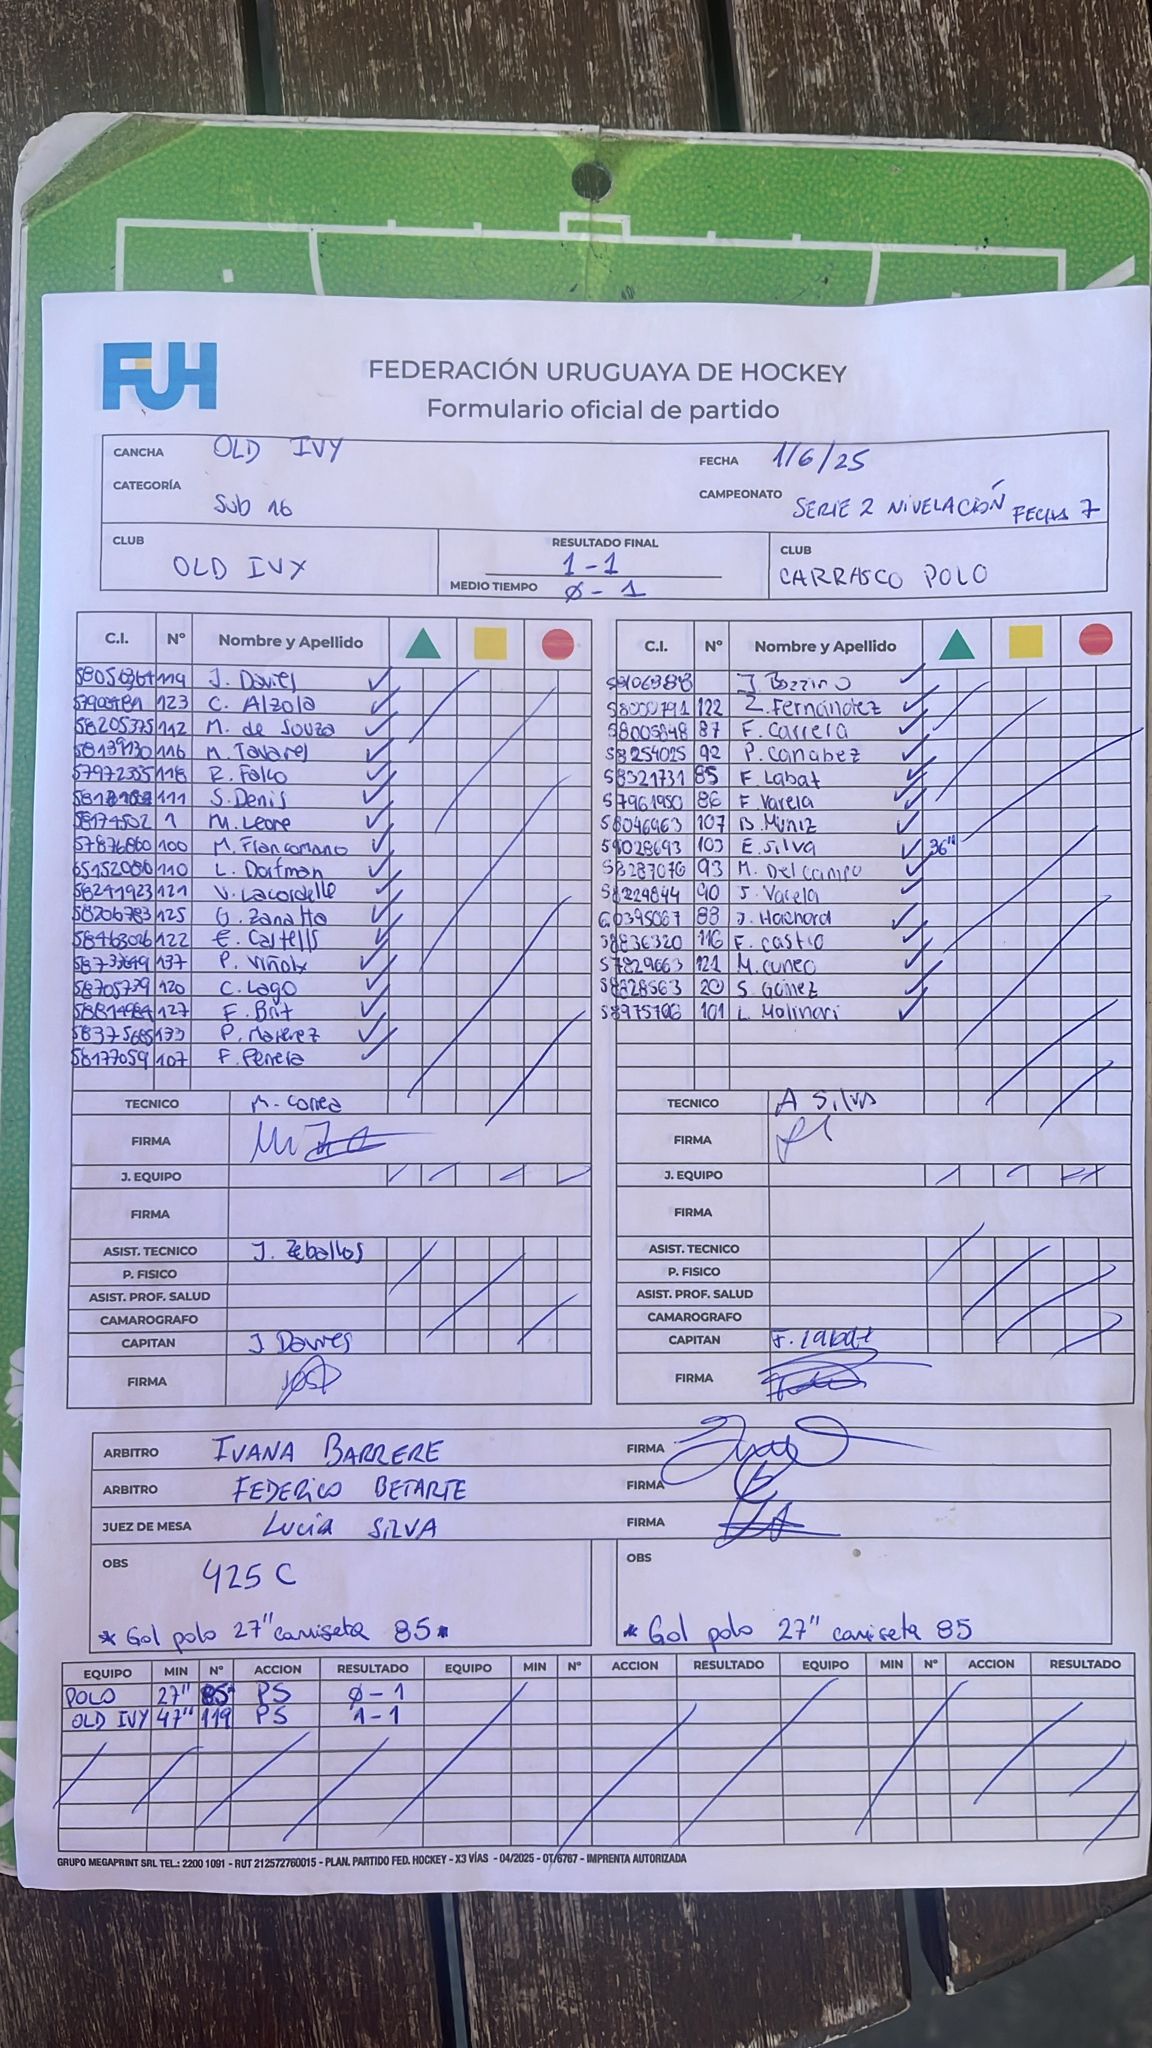 FUH
FEDERACIÓN URUGUAYA DE HOCKEY
Formulario oficial de partido
CANCHA OLD IVY FECHA 1/6/25
CATEGORÍA Sub 16 CAMPEONATO SERIE 2 NIVELACIÓN FECHA 7
CLUB OLD IVY RESULTADO FINAL 1-1 CLUB CARRASCO POLO
MEDIO TIEMPO Ø-1
C.I. Nº Nombre y Apellido
119 J. Davies
123 C. Alzola
58205375 112 M. de Souza
58139130 116 M. Tavarel
57972355 118 R. Falco
111 S. Denis
58174502 1 M. Leone
57876860 100 M. Francomano
65152080 110 L. Dorfman
58241923 121 V. Lacordelle
58206783 125 G. Zanatta
58463026 122 E. Castells
137 P. Viñoly
58705779 120 C. Lago
127 F. Brit
58375685 133 P.
58177059 107 F. Perera
TECNICO M. Correa
FIRMA
J. EQUIPO
FIRMA
ASIST. TECNICO J. Zeballos
P. FISICO
ASIST. PROF. SALUD
CAMAROGRAFO
CAPITAN J. Davies
FIRMA
C.I. Nº Nombre y Apellido
J. Bozzino
58000791 122 Z. Fernández
58005848 87 F. Carrera
58254025 92 P. Canabez
58321731 85 F. Labat
57961950 86 F. Varela
58046963 107 B. Muniz
59028693 103 E. Silva 36"
58287076 93 M. Del campo
58224844 90 J. Varela
60395067 88 J. Hachard
58836320 116 F. castro
57829663 121 M. cuneo
58828563 20 S. Gómez
58975706 101 L. Molinari
TECNICO A Silva
FIRMA
J. EQUIPO
FIRMA
ASIST. TECNICO
P. FISICO
ASIST. PROF. SALUD
CAMAROGRAFO
CAPITAN F. Labat
FIRMA
ARBITRO IVANA BARRERE FIRMA
ARBITRO FEDERICO BETARTE FIRMA
JUEZ DE MESA Lucía SILVA FIRMA
OBS 425 C
* Gol polo 27" camiseta 85
OBS
* Gol polo 27" camiseta 85
EQUIPO MIN Nº ACCION RESULTADO EQUIPO MIN Nº ACCION RESULTADO EQUIPO MIN Nº ACCION RESULTADO
POLO 27" 85 PS Ø-1
OLD IVY 47" 119 PS 1-1
GRUPO MEGAPRINT SRL TEL.: 2200 1091 - RUT 212572760015 - PLAN. PARTIDO FED. HOCKEY - X3 VÍAS - 04/2025 - OT/6767 - IMPRENTA AUTORIZADA